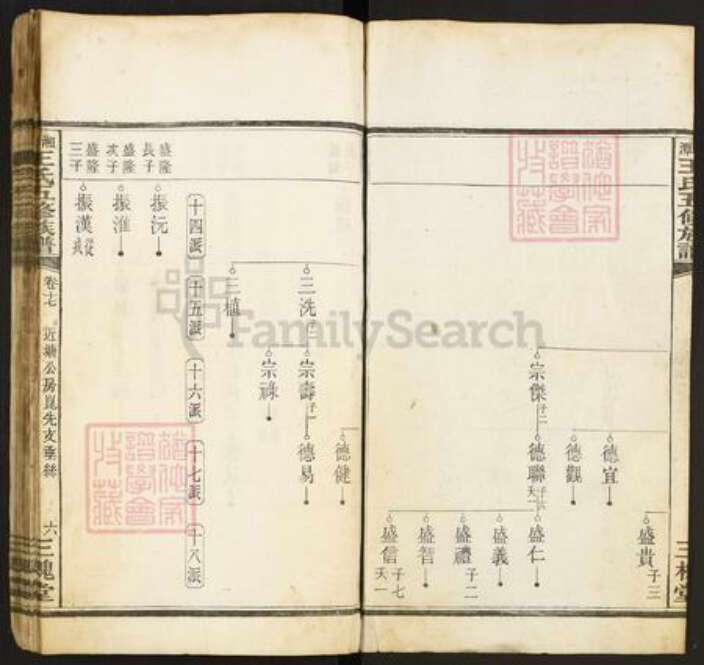 王氏五修族譜
三槐堂
盛貴
子三
德宜
德觀
宗傑
子二
德聯
盛仁
盛義
盛禮
子二
盛智
盛信
子七
天一
德健
三洗
子二
宗壽
子一
德易
宗祿
三植
十四派
十五派
十六派
十七派
十八派
盛隆
長子
振沅
盛隆
次子
振淮
盛隆
三子
振漢
王氏五修族譜
卷十七
近塘公房崑先支垂絲
六
三槐堂
FamilySearch